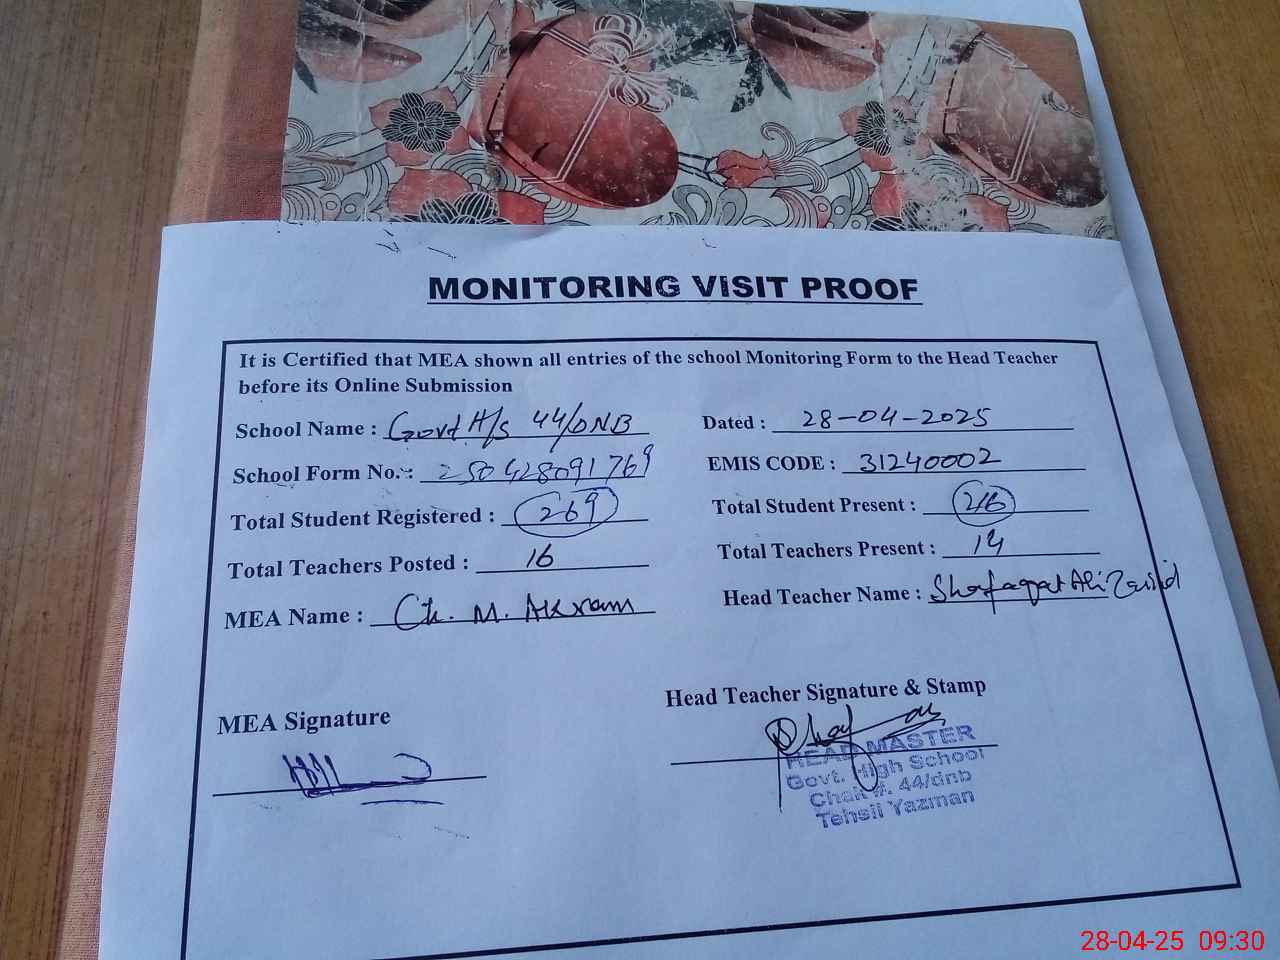 MONITORING VISIT PROOF
It is Certified that MEA shown all entries of the school Monitoring Form to the Head Teacher
before its Online Submission
School Name : Govt H/s 44/DNB
Dated : 28-04-2025
School Form No. : 250428091769
EMIS CODE : 31240002
Total Student Registered : 269
Total Student Present : 216
Total Teachers Posted : 16
Total Teachers Present : 14
MEA Name : Ch. M. Akram
Head Teacher Name : Shafaqat Ali
MEA Signature
Head Teacher Signature & Stamp
HEAD MASTER
Govt. High School
Chak #. 44/dnb
Tehsil Yazman
28-04-25 09:30